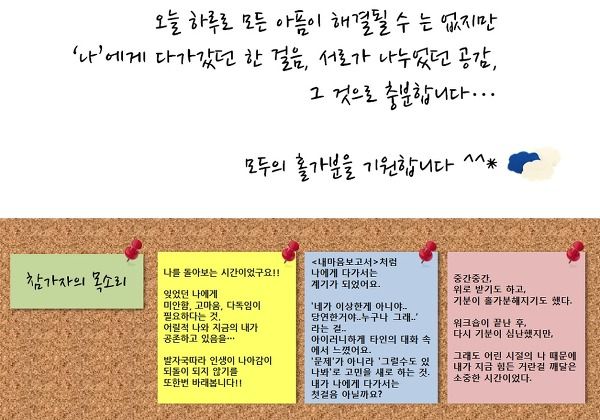 오늘 하루로 모든 아픔이 해결될 수 는 없지만
'나'에게 다가갔던 한 걸음, 서로가 나누었던 공감,
그 것으로 충분합니다...
모두의 홀가분을 기원합니다 ^^*
참가자의 목소리
나를 돌아보는 시간이었구요!!
잊었던 나에게
미안함, 고마움, 다독임이
필요하다는 것.
어릴적 나와 지금의 내가
공존하고 있음을…
발자국따라 인생이 나아감이
되돌이 되지 않기를
또한번 바래봅니다!!
<내마음보고서>처럼
나에게 다가서는
계기가 되었어요.
'네가 이상한게 아니야..
당연한거야..누구나 그래..'
라는 걸..
아이러니하게 타인의 대화 속
에서 느꼈어요.
'문제'가 아니라 '그럴수도 있
나봐'로 고민을 새로 하는 것.
내가 나에게 다가서는
첫걸음 아닐까요?
중간중간,
위로 받기도 하고,
기분이 홀가분해지기도 했다.
워크숍이 끝난 후,
다시 기분이 심난했지만,
그래도 어린 시절의 나 때문에
내가 지금 힘든 거란걸 깨달은
소중한 시간이었다.